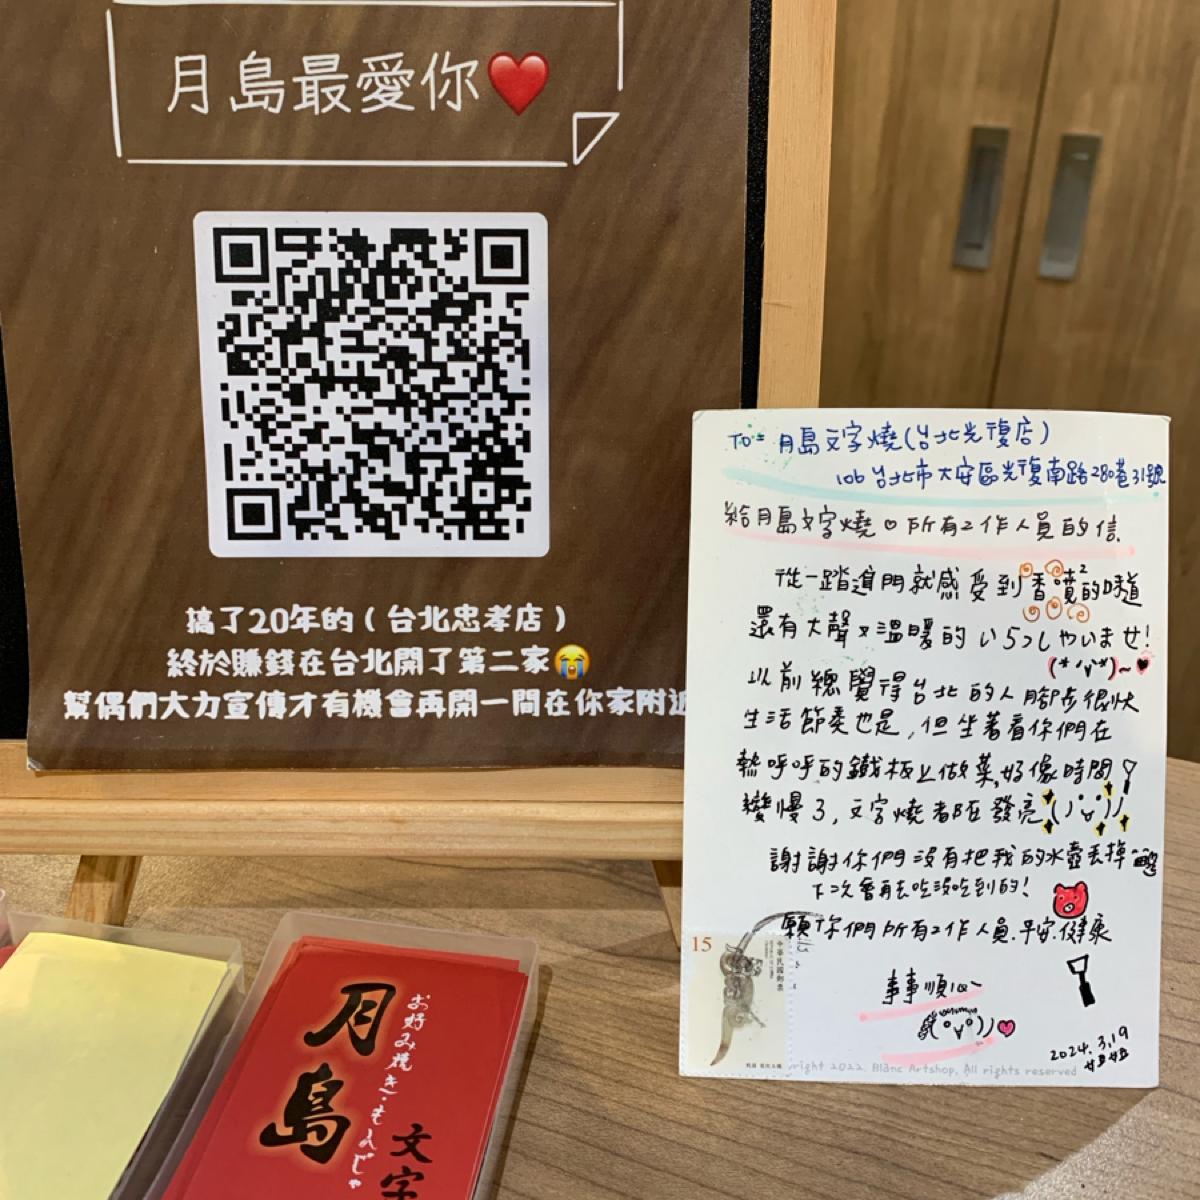 月島最愛你❤️
搞了20年的（台北忠孝店）
終於賺錢在台北開了第二家😭
幫偶們大力宣傳才有機會再開一間在你家附近
TO: 月島文字燒(台北光復店)
106 台北市大安區光復南路280巷31號
給月島文字燒♡所有工作人員的信
從一踏進門就感受到香噴²的味道
還有大聲又溫暖的 いらっしゃいませ!
(*'v'*)~♥
以前總覺得台北的人腳步很快
生活節奏也是,但坐著看你們在
熱呼呼的鐵板上做菜,好像時間
變慢了,文字燒都在發亮
謝謝你們沒有把我的水壺丟掉
下次會再去吃沒吃到的!
願你們所有工作人員.平安.健康
事事順心~
2024.3.19
15
中華民國郵票
right 2022. Blanc Artshop, All rights reserved
月島
お好み焼き・もんじゃ
文字